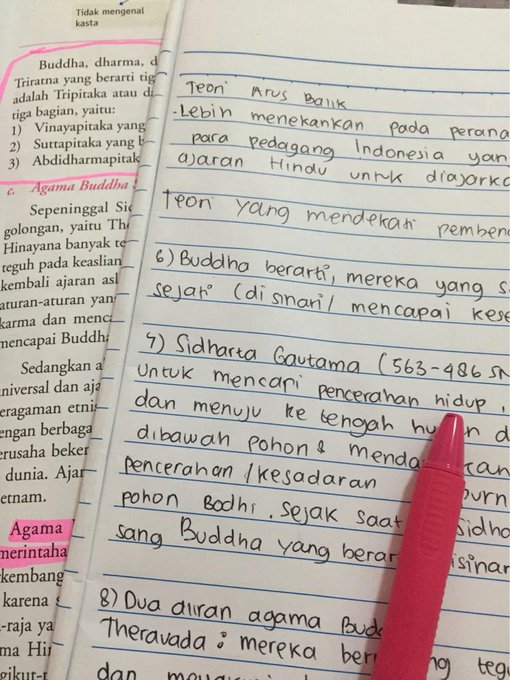 Tidak mengenal
kasta
Buddha, dharma, d
Triratna yang berarti tig
adalah Tripitaka atau d
tiga bagian, yaitu:
1) Vinayapitaka yang
2) Suttapitaka yang b
3) Abdidharmapitak
c. Agama Buddha
Sepeninggal Si
golongan, yaitu Th
Hinayana banyak te
teguh pada keaslian
kembali ajaran asl
aturan-aturan yan
karma dan menca
mencapai Buddh
Sedangkan a
niversal dan aja
eragaman etni
engan berbaga
erusaha beker
dunia. Ajar
etnam.
Agama
merintaha
kembang
karena
-raja ya
ma Hin
gikut-t
Teori Arus Balik
. Lebih menekankan pada perana
para pedagang Indonesia yan
ajaran Hindu untuk diajarka
Teori yang mendekati pemben
6) Buddha berarti, mereka yang s
sejati (disinari / mencapai kese
7) Sidharta Gautama (563-486 SM
untuk mencari pencerahan hidup,
dan menuju ke tengah d
dibawah pohon & menda
pencerahan / kesadaran
pohon Bodhi. Sejak saat Sidha
sang Buddha yang berar isinar
8) Dua aliran agama Budd
Theravada : mereka ber ng teg
dan